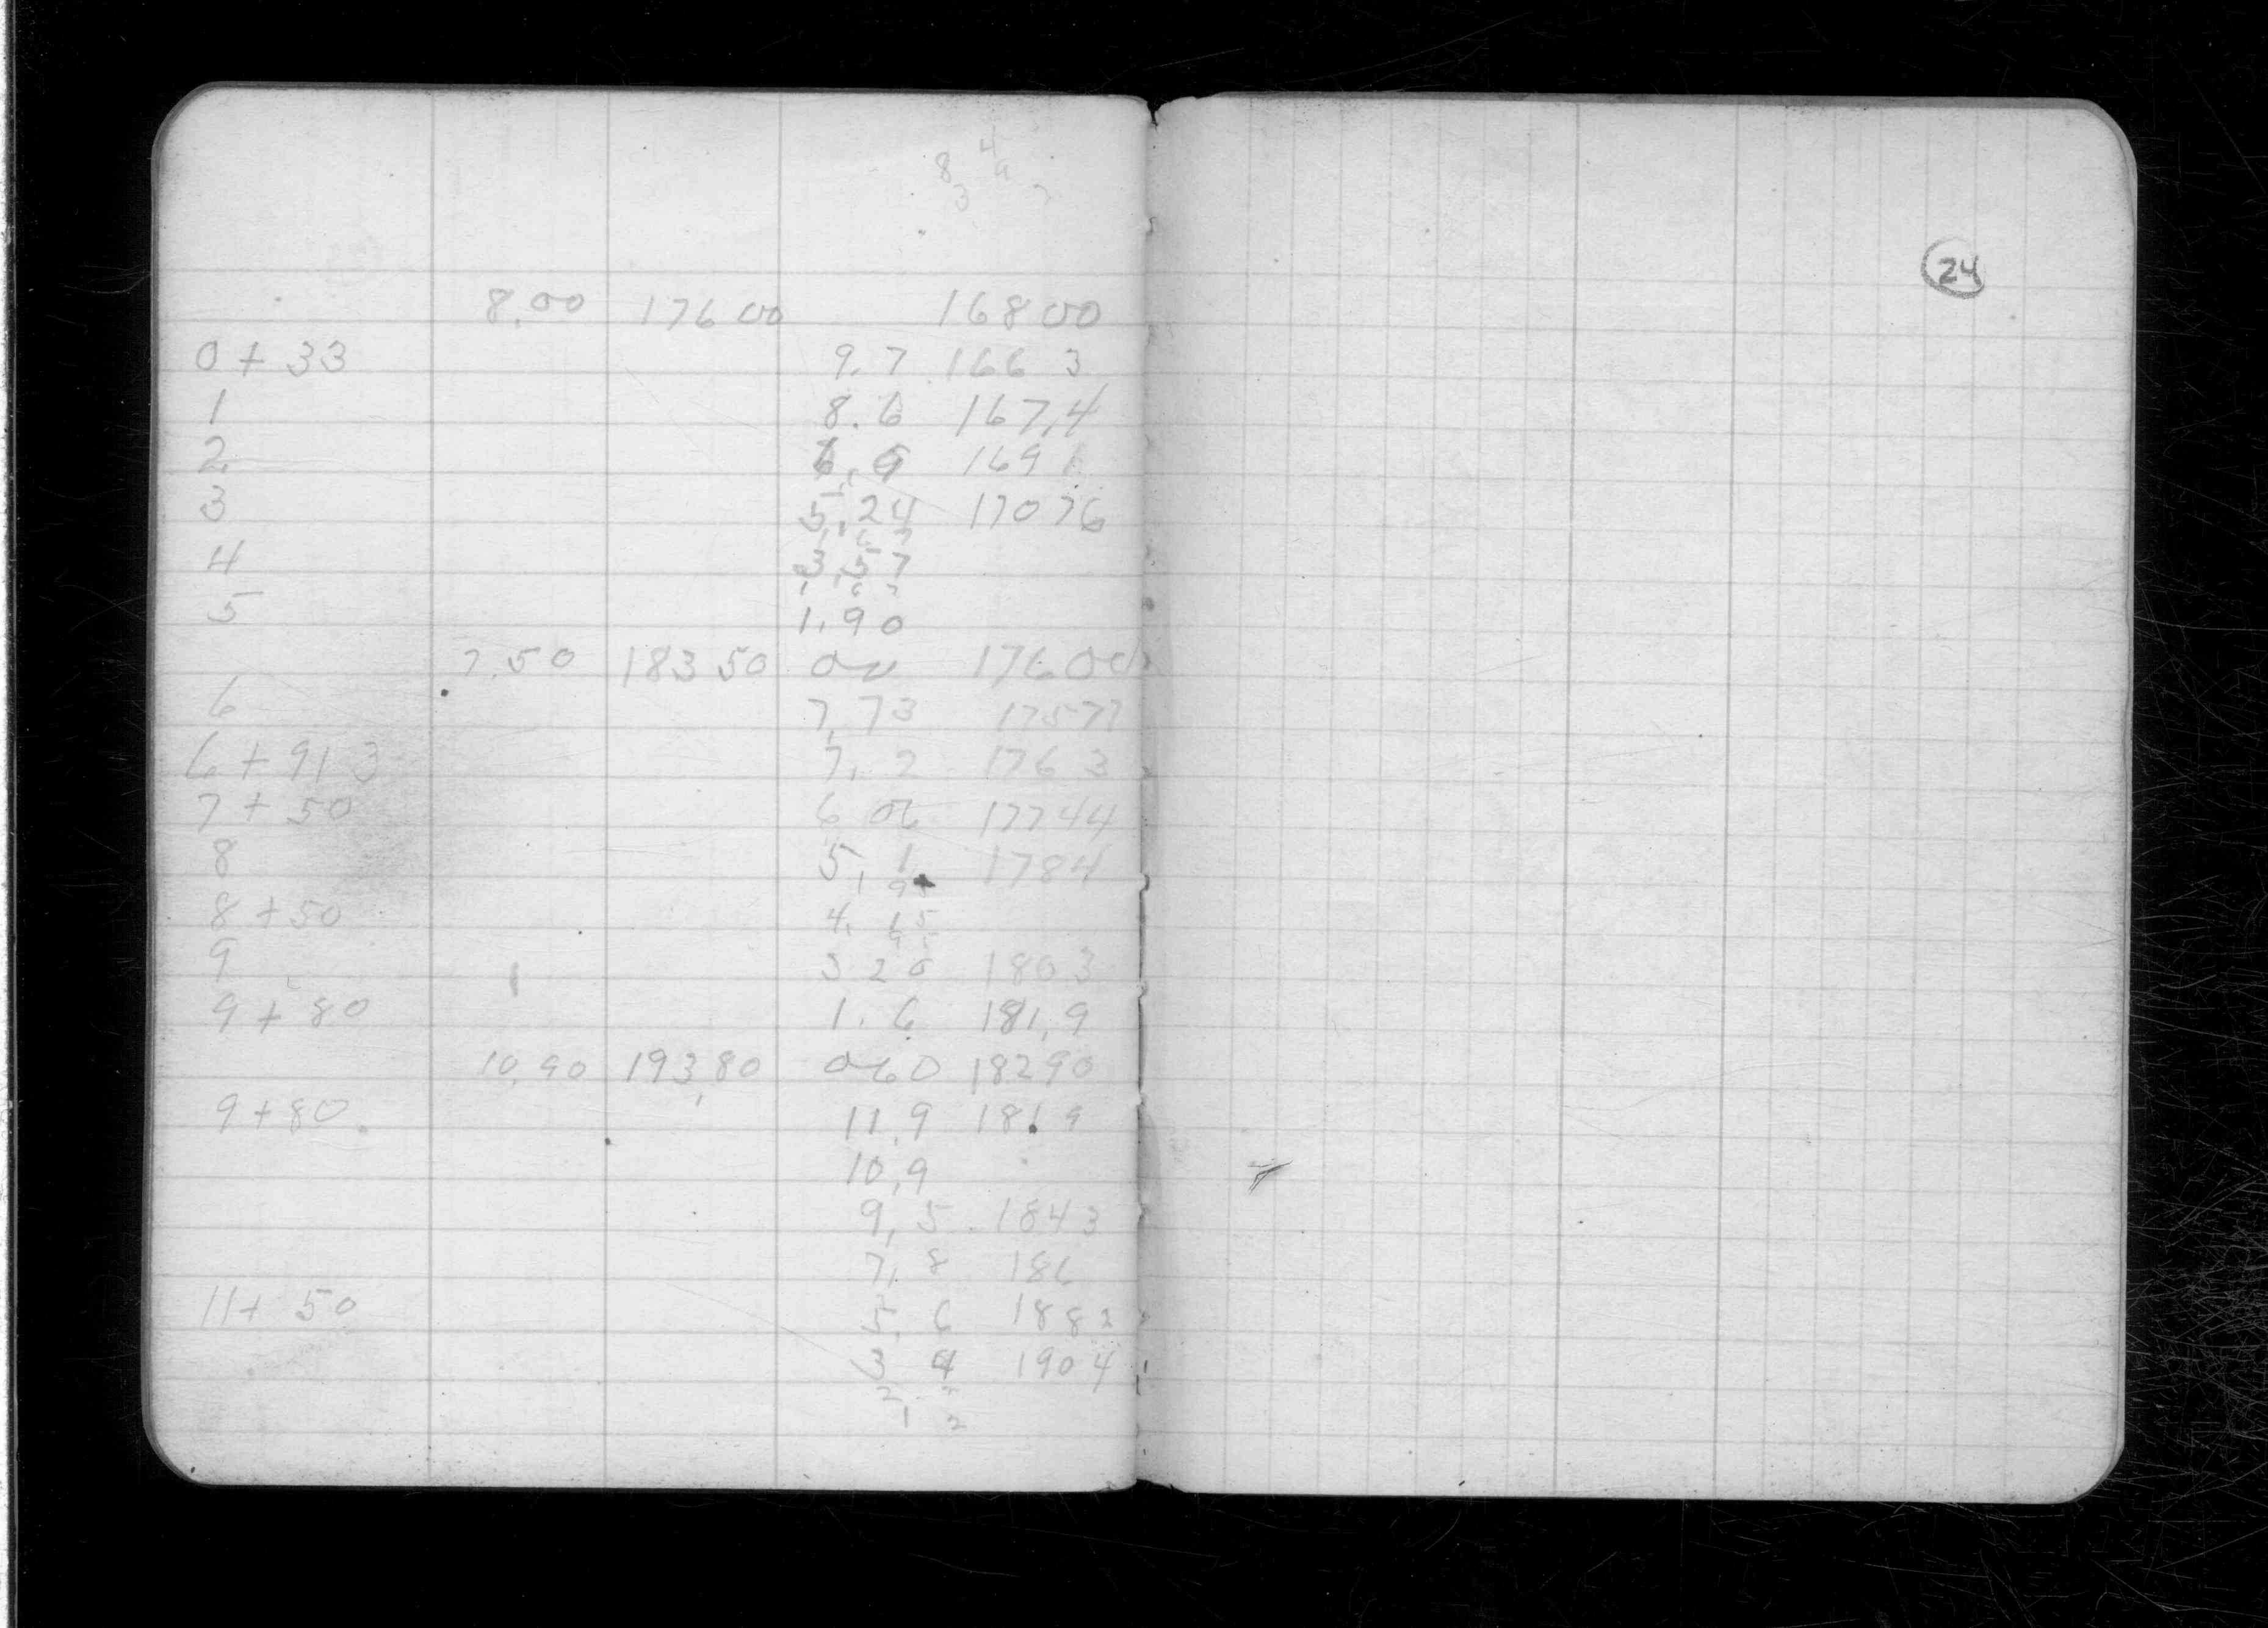 8 4
3 9
8.00 176 00 168 00
0 + 33 9.7 166 3
1 8.6 167.4
2 169 1
3 5.24 170 76
1 6 7
4 3.57
1 6 7
5 1.90
7.50 183 50 176 00
6 7.73 175 77
6 + 91 3 7.2 176 3
7 + 50 6 06 177 44
8 5.1 178 4
1 9
8 + 50 4.15
9 5
9 3 20 180 3
9 + 80 1.6 181.9
10.90 193.80 0 60 182 90
9 + 80 11.9 181 9
10.9
9.5 184 3
7.8 186
11 + 50 5.6 188 2
3 4 190 4
2 2
1 2
24